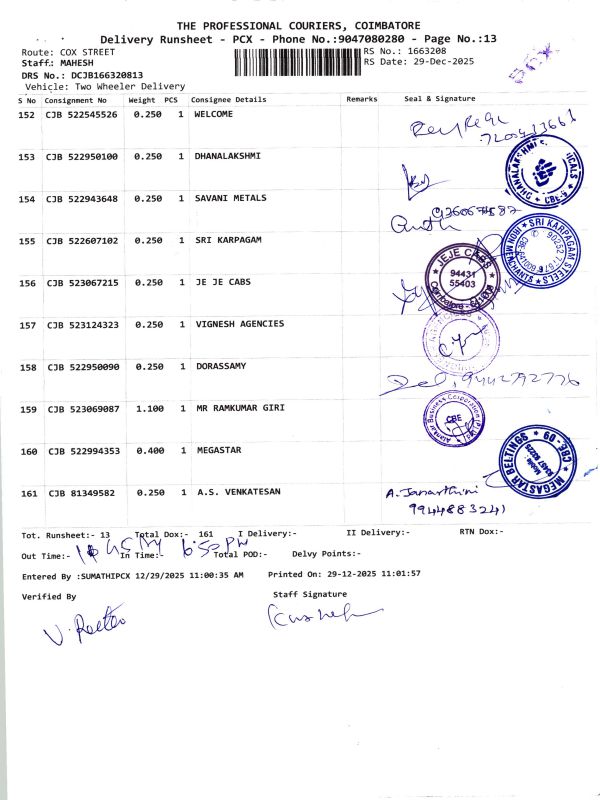 THE PROFESSIONAL COURIERS, COIMBATORE
Delivery Runsheet - PCX - Phone No.:9047080280 - Page No.:13
Route: COX STREET
RS No.: 1663208
Staff: MAHESH
RS Date: 29-Dec-2025
DRS No.: DCJB166320813
Vehicle: Two Wheeler Delivery
S No Consignment No Weight PCS Consignee Details Remarks Seal & Signature
152 CJB 522545526 0.250 1 WELCOME
153 CJB 522950100 0.250 1 DHANALAKSHMI
154 CJB 522943648 0.250 1 SAVANI METALS
155 CJB 522607102 0.250 1 SRI KARPAGAM
SRI KARPAGAM STEELS
156 CJB 523067215 0.250 1 JE JE CABS
JEJE CABS
94431
55403
157 CJB 523124323 0.250 1 VIGNESH AGENCIES
158 CJB 522950090 0.250 1 DORASSAMY
9442792776
159 CJB 523069087 1.100 1 MR RAMKUMAR GIRI
CBE
160 CJB 522994353 0.400 1 MEGASTAR
MEGASTAR BELTINGS CBE-09
161 CJB 81349582 0.250 1 A.S. VENKATESAN
A. Jananthini
9944883241
Tot. Runsheet:- 13 Total Dox:- 161 I Delivery:- II Delivery:- RTN Dox:-
Out Time:- In Time:- 6:50 PM Total POD:- Delvy Points:-
Entered By :SUMATHIPCX 12/29/2025 11:00:35 AM Printed On: 29-12-2025 11:01:57
Verified By Staff Signature